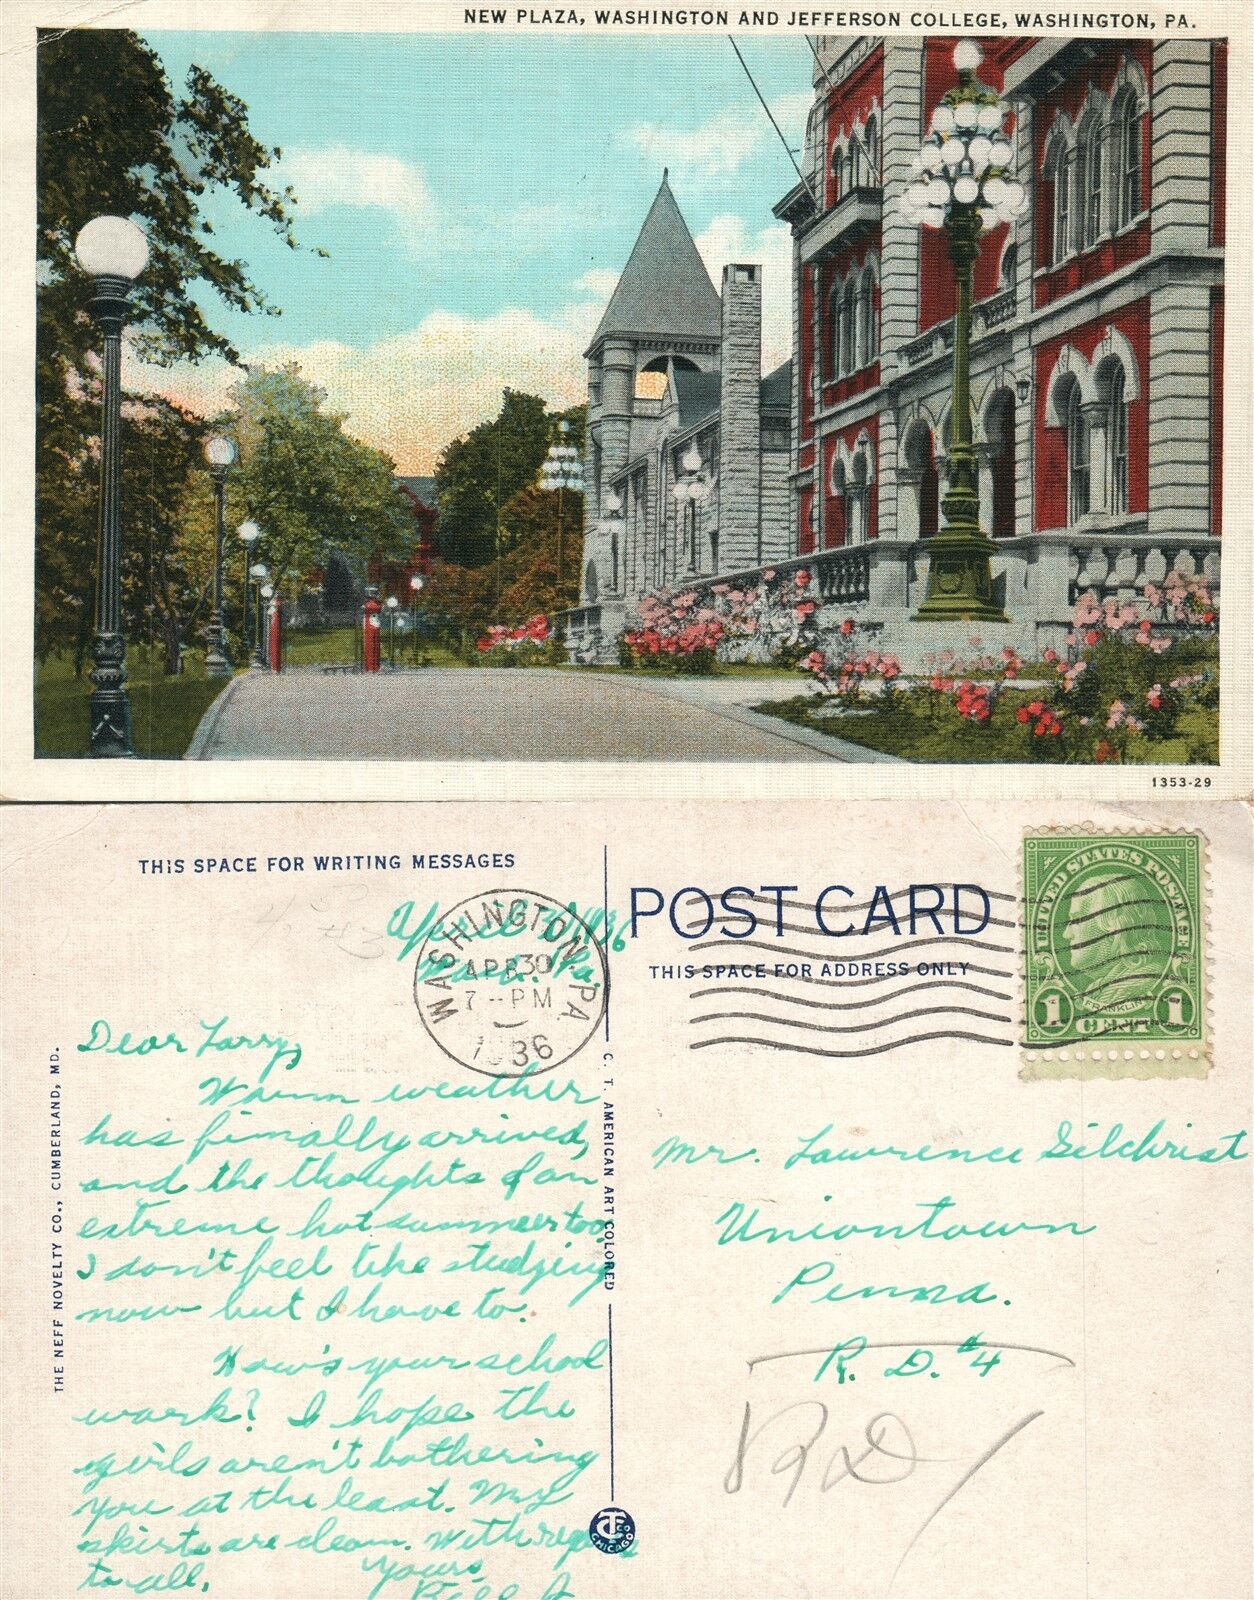 NEW PLAZA, WASHINGTON AND JEFFERSON COLLEGE, WASHINGTON, PA.
1353-29
THIS SPACE FOR WRITING MESSAGES
POST CARD
THIS SPACE FOR ADDRESS ONLY
WASHINGTON, PA.
APR 30
7 -- PM
1936
UNITED STATES POSTAGE
FRANKLIN
1 CENT 1
April 30, 1936
Pa.
Dear Larry,
Warm weather
has finally arrived,
and the thoughts of an
extreme hot summer too.
I don't feel like studying
now but I have to.
How's your school
work? I hope the
girls aren't bothering
you at the least. My
skirts are clean. With regards
to all.
Yours
Bill
Mr. Lawrence Gilchrist
Uniontown
Penna.
R. D. #4
RD
THE NEFF NOVELTY CO., CUMBERLAND, MD.
C. T. AMERICAN ART COLORED
CT CO CHICAGO